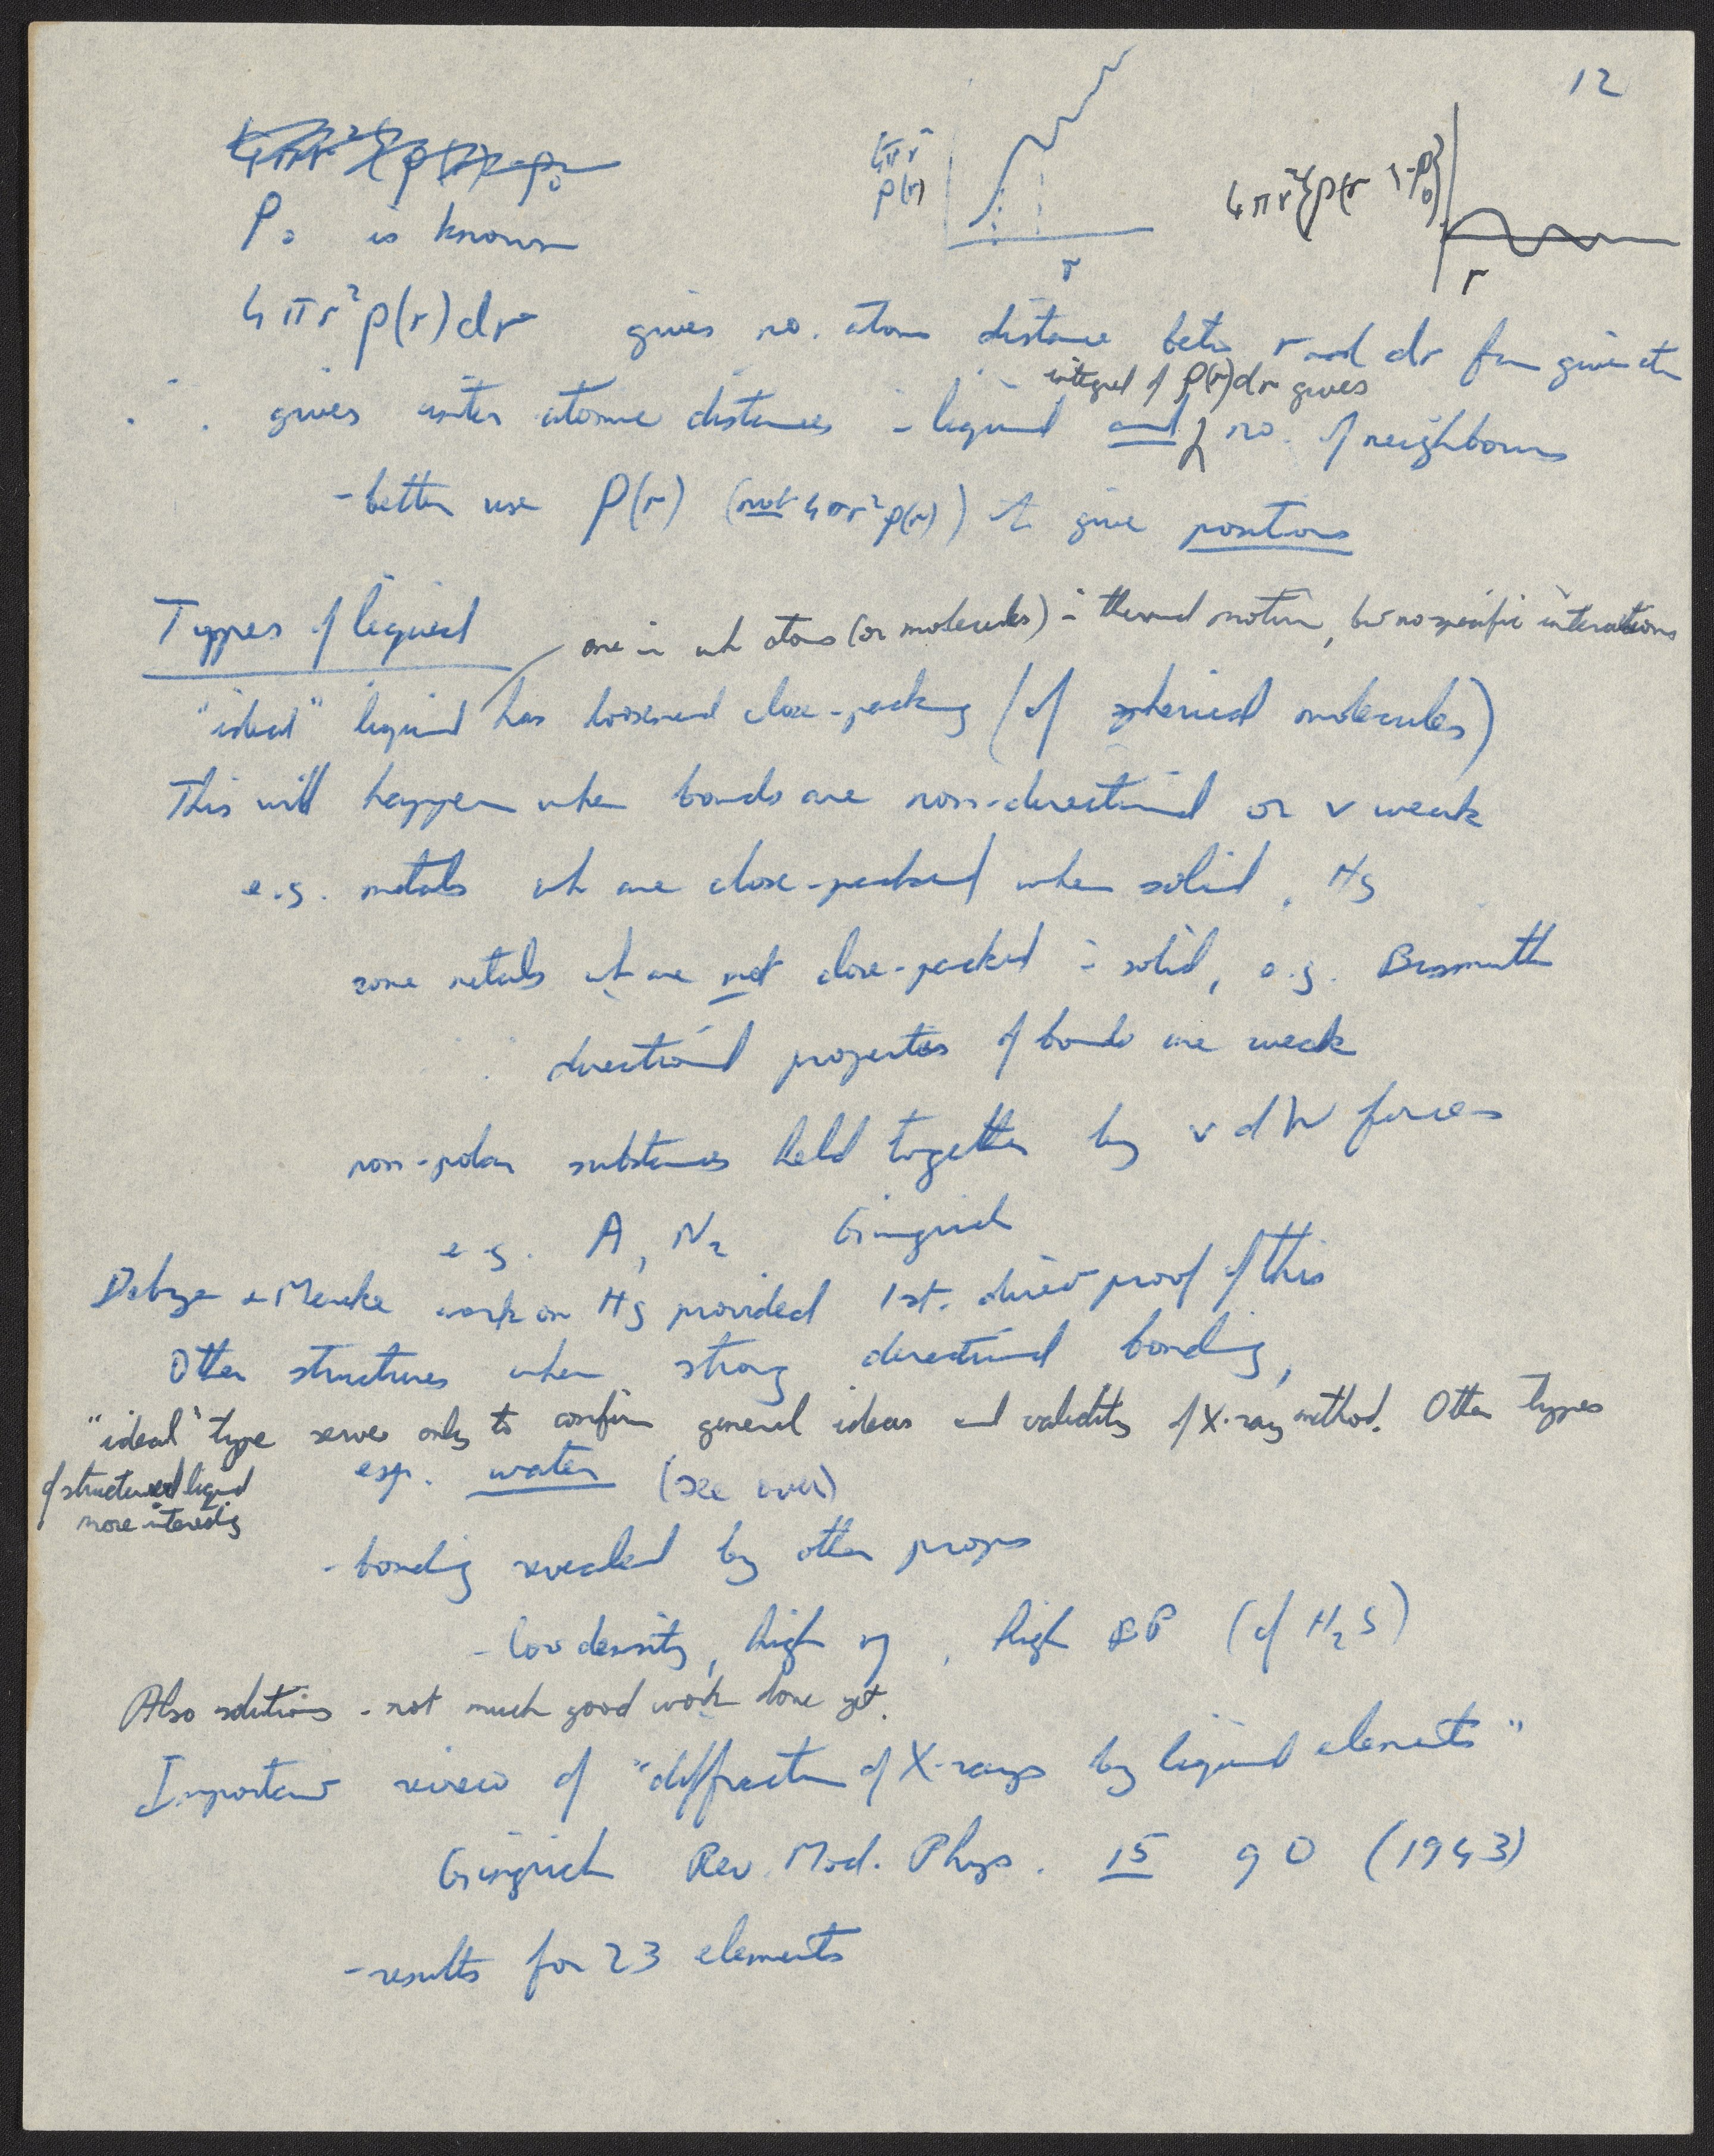 12
4πr²{ρ(r)-ρ₀
4πr²
ρ(r)
r
4πr²{ρ(r)-ρ₀}
r
ρ₀ is known
4πr²ρ(r)dr gives no. atoms distance betw r and dr from given atom
integral of ρ(r)dr gives
∴ gives inter atomic distances in liquid and no. of neighbours
- better use ρ(r) (not 4πr²ρ(r)) to give positions
Types of liquid
one in wh atoms (or molecules) in thermal motion, but no specific interactions
"ideal" liquid has loosened close-packing (of spherical molecules)
This will happen when bonds are non-directional or v weak
e.g. metals wh are close-packed when solid, Hg
some metals wh are not close-packed in solid, e.g. Bismuth
∴ directional properties of bonds are weak
non-polar substances held together by v d W forces
e.g. A, N₂ Gingrich
Debye & Menke work on Hg provided 1st. direct proof of this
Other structures when strong directional bonding,
"ideal" type serves only to confirm general ideas and validity of X-ray method. Other types
of structured liquid
more interesting
esp. water (see over)
- bonding revealed by other props
- low density, high η, high BP (cf H₂S)
Also solutions - not much good work done yet.
Important review of "diffraction of X-rays by liquid elements"
Gingrich Rev. Mod. Phys. 15 90 (1943)
- results for 23 elements